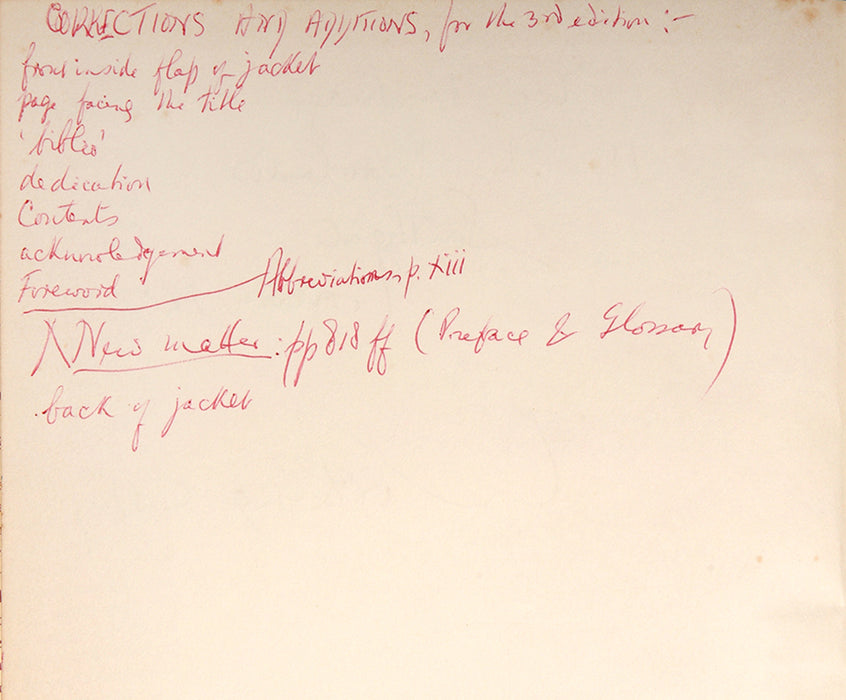 CORRECTIONS AND ADDITIONS, for the 3rd edition :-
front inside flap of jacket
page facing the title
'biblio'
dedication
Contents
acknowledgement
Foreword Abbreviations, p. xiii
New matter : pp 818 ff (Preface & Glossary)
back of jacket